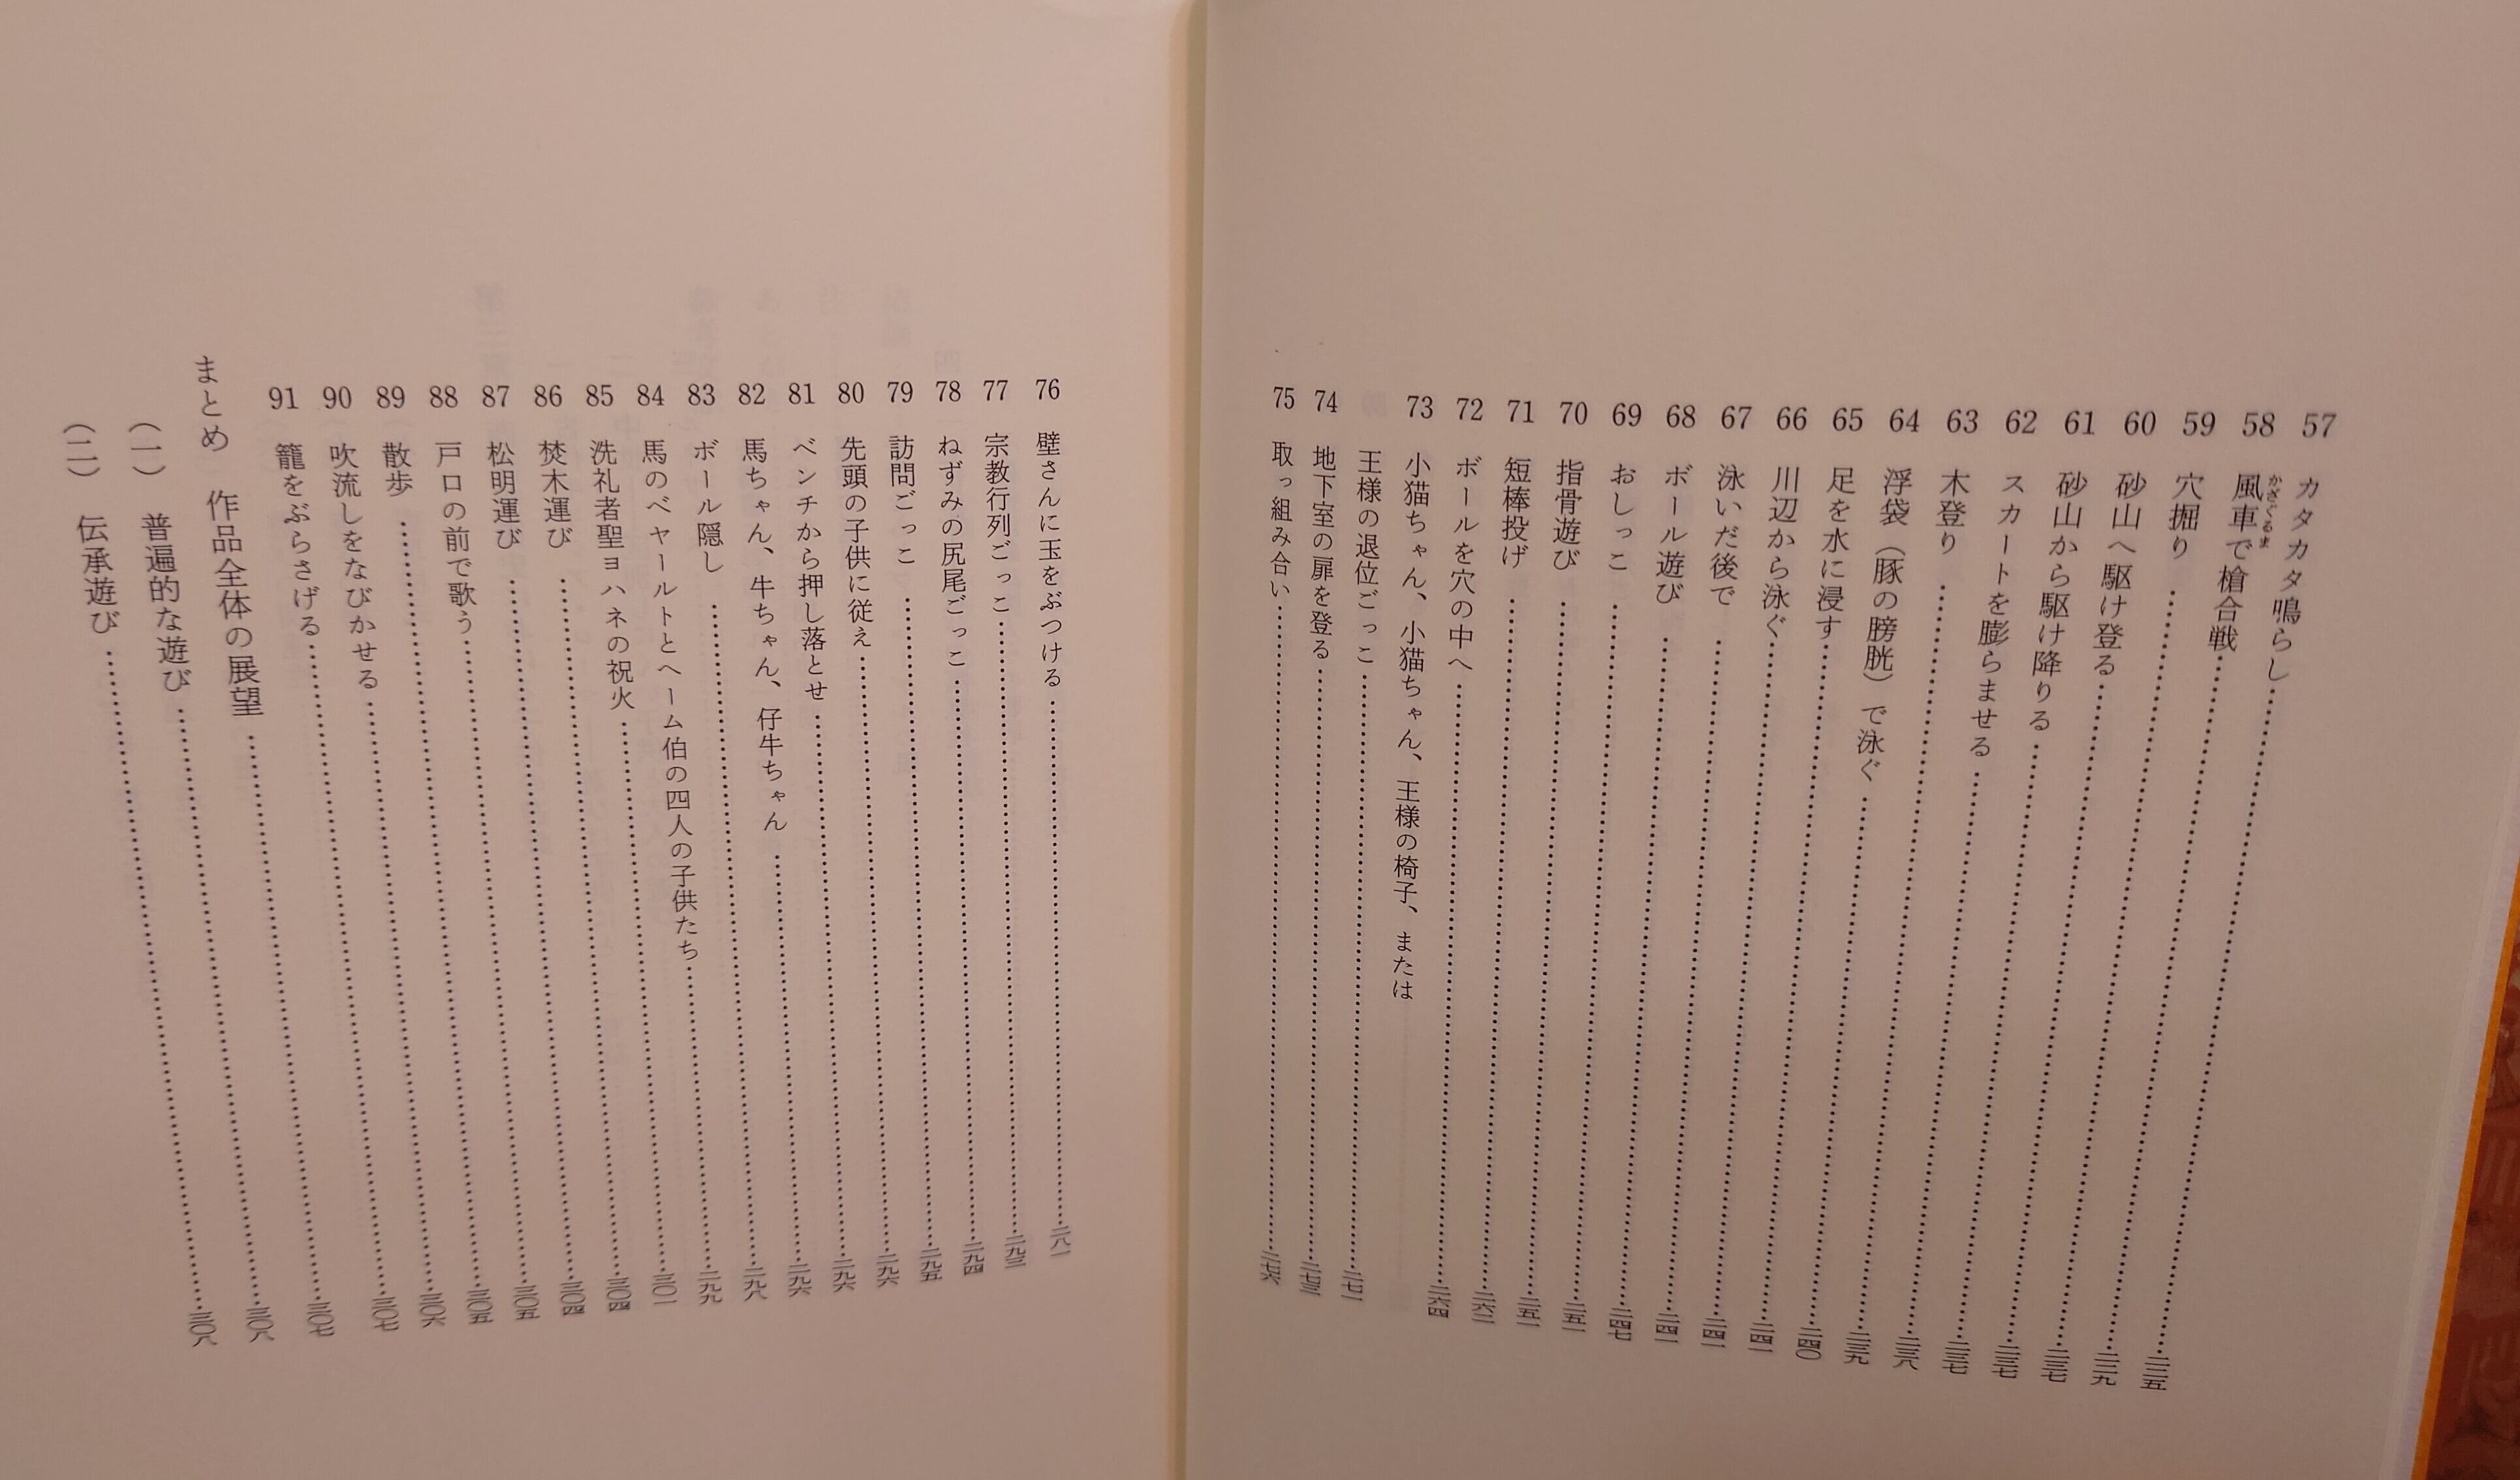 57 カタカタ鳴らし……二二五
58 風車で槍合戦……二二九
かざぐるま
59 穴掘り……二三七
60 砂山へ駆け登る……二三七
61 砂山から駆け降りる……二三七
62 スカートを膨らませる……二三八
63 木登り……二三九
64 浮袋（豚の膀胱）で泳ぐ……二四〇
65 足を水に浸す……二四一
66 川辺から泳ぐ……二四一
67 泳いだ後で……二四一
68 ボール遊び……二四七
69 おしっこ……二五一
70 指骨遊び……二五一
71 短棒投げ……二六二
72 ボールを穴の中へ……二六四
73 小猫ちゃん、小猫ちゃん、王様の椅子、または
王様の退位ごっこ……二七一
74 地下室の扉を登る……二七三
75 取っ組み合い……二七六
76 壁さんに玉をぶつける……二八一
77 宗教行列ごっこ……二九三
78 ねずみの尻尾ごっこ……二九四
79 訪問ごっこ……二九五
80 先頭の子供に従え……二九六
81 ベンチから押し落とせ……二九六
82 馬ちゃん、牛ちゃん、仔牛ちゃん……二九六
83 ボール隠し……二九八
84 馬のベヤールトとヘーム伯の四人の子供たち……二九九
85 洗礼者聖ヨハネの祝火……三〇一
86 焚木運び……三〇四
87 松明運び……三〇四
88 戸口の前で歌う……三〇五
89 散歩……三〇五
90 吹流しをなびかせる……三〇六
91 籠をぶらさげる……三〇七
まとめ 作品全体の展望……三〇七
（一） 普遍的な遊び……三〇八
（二） 伝承遊び……三〇八